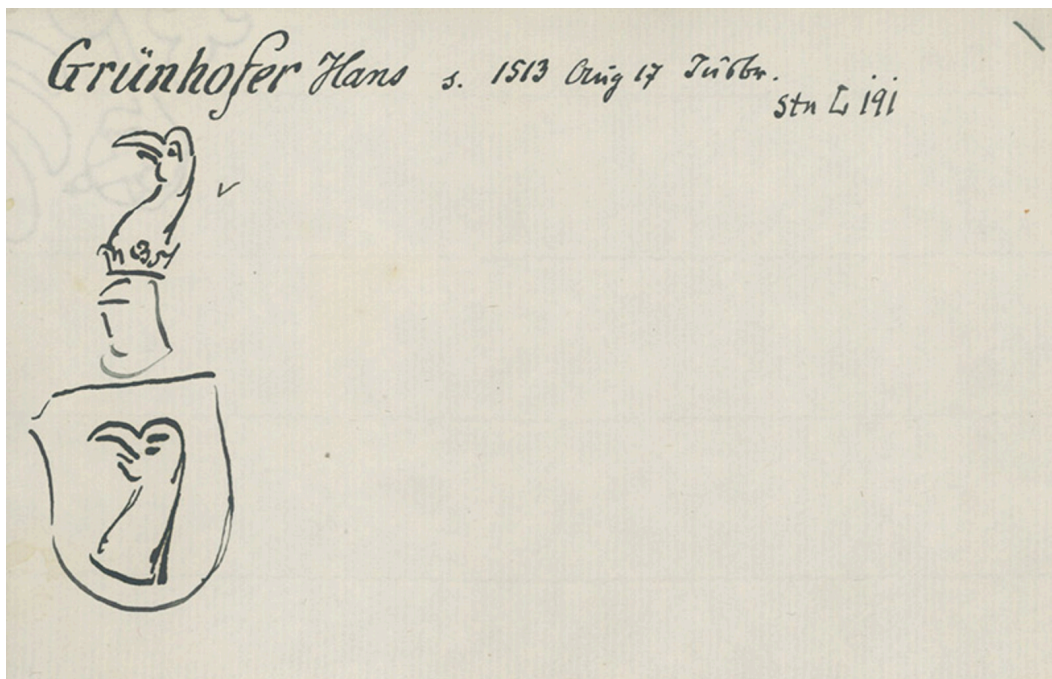 Grünhofer Hans s. 1513 Aug 17
Stn 191